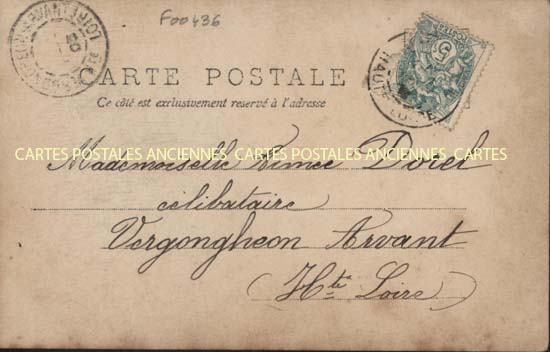 F00436
CARTE POSTALE
Ce côté est exclusivement reservé à l'adresse
CARTES POSTALES ANCIENNES CARTES POSTALES ANCIENNES CARTES
Mademoiselle Aimée Dorel
célibataire
Vergongheon Arvant
(Hte Loire)